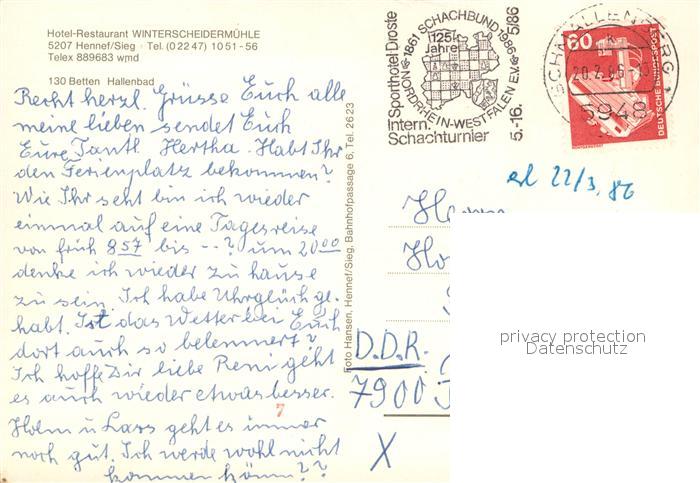 Hotel-Restaurant WINTERSCHEIDERMÜHLE
5207 Hennef/Sieg · Tel. (0 22 47) 10 51 - 56
Telex 889683 wmd
130 Betten Hallenbad
Recht herzl. Grüsse Euch alle
meine lieben sendet Euch
Eure Tantl. Hertha. Habt Ihr
den Ferienplatz bekommen?
Wie Ihr seht bin ich wieder
einmal auf eine Tagesreise
von früh 8 57 bis --? um 20 00
denke ich wieder zu hause
zu sein. Ich habe Uhrglück ge-
habt. Ist das Wetter bei Euch
dort auch so belemmert?
Ich hoffe Dir liebe Reni geht
es auch wieder etwas besser.
7
Holm u Lars geht es immer
noch gut. Ich werde wohl nicht
kommen könn??
Foto Hansen, Hennef/Sieg, Bahnhofpassage 6, Tel. 26 23
Sporthotel Droste
1861 SCHACHBUND 1986
125
Jahre
NORDRHEIN-WESTFALEN E.V.
Intern.
Schachturnier
5.-16. 5/86
SCHMALLENBERG
20.2.86
5948
60
DEUTSCHE BUNDESPOST
erl 22/3. 86
D.D.R.
7900
X
privacy protection
Datenschutz